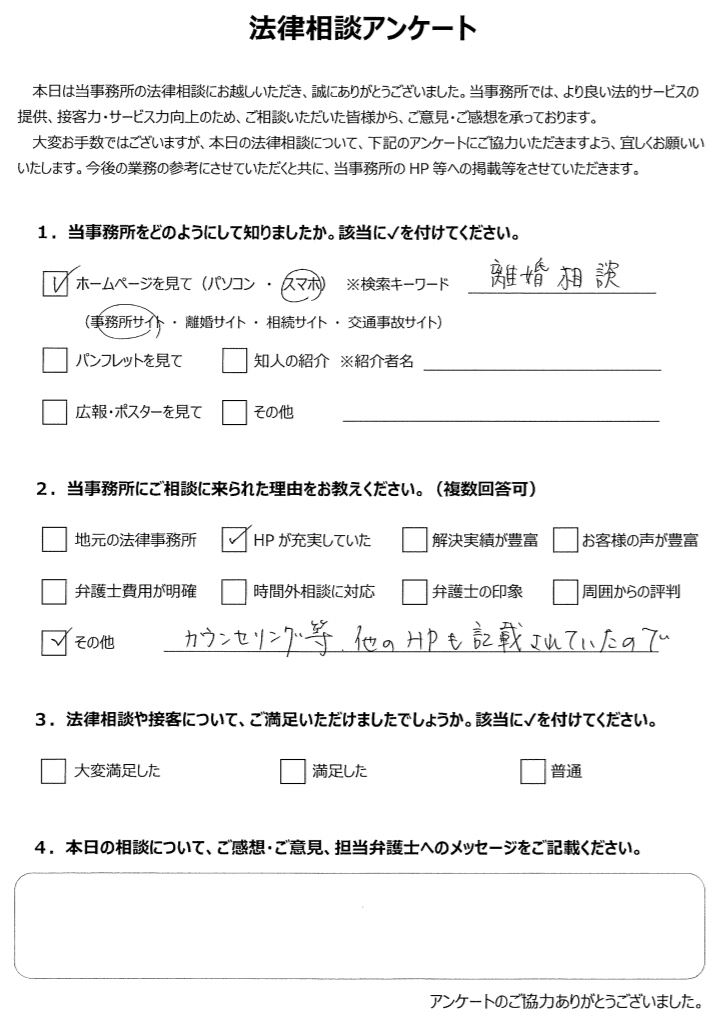 法律相談アンケート
本日は当事務所の法律相談にお越しいただき、誠にありがとうございました。当事務所では、より良い法的サービスの
提供、接客力・サービス力向上のため、ご相談いただいた皆様から、ご意見・ご感想を承っております。
大変お手数ではございますが、本日の法律相談について、下記のアンケートにご協力いただきますよう、宜しくお願いい
いたします。今後の業務の参考にさせていただくと共に、当事務所の HP 等への掲載等をさせていただきます。
1．当事務所をどのようにして知りましたか。該当に✓を付けてください。
☑ ホームページを見て（パソコン ・ スマホ） ※検索キーワード 離婚相談
（事務所サイト ・ 離婚サイト ・ 相続サイト ・ 交通事故サイト）
☐ パンフレットを見て ☐ 知人の紹介 ※紹介者名
☐ 広報・ポスターを見て ☐ その他
2．当事務所にご相談に来られた理由をお教えください。（複数回答可）
☐ 地元の法律事務所 ☑ HP が充実していた ☐ 解決実績が豊富 ☐ お客様の声が豊富
☐ 弁護士費用が明確 ☐ 時間外相談に対応 ☐ 弁護士の印象 ☐ 周囲からの評判
☑ その他 カウンセリング等、他のHPも記載されていたので
3．法律相談や接客について、ご満足いただけましたでしょうか。該当に✓を付けてください。
☐ 大変満足した ☐ 満足した ☐ 普通
4．本日の相談について、ご感想・ご意見、担当弁護士へのメッセージをご記載ください。
アンケートのご協力ありがとうございました。